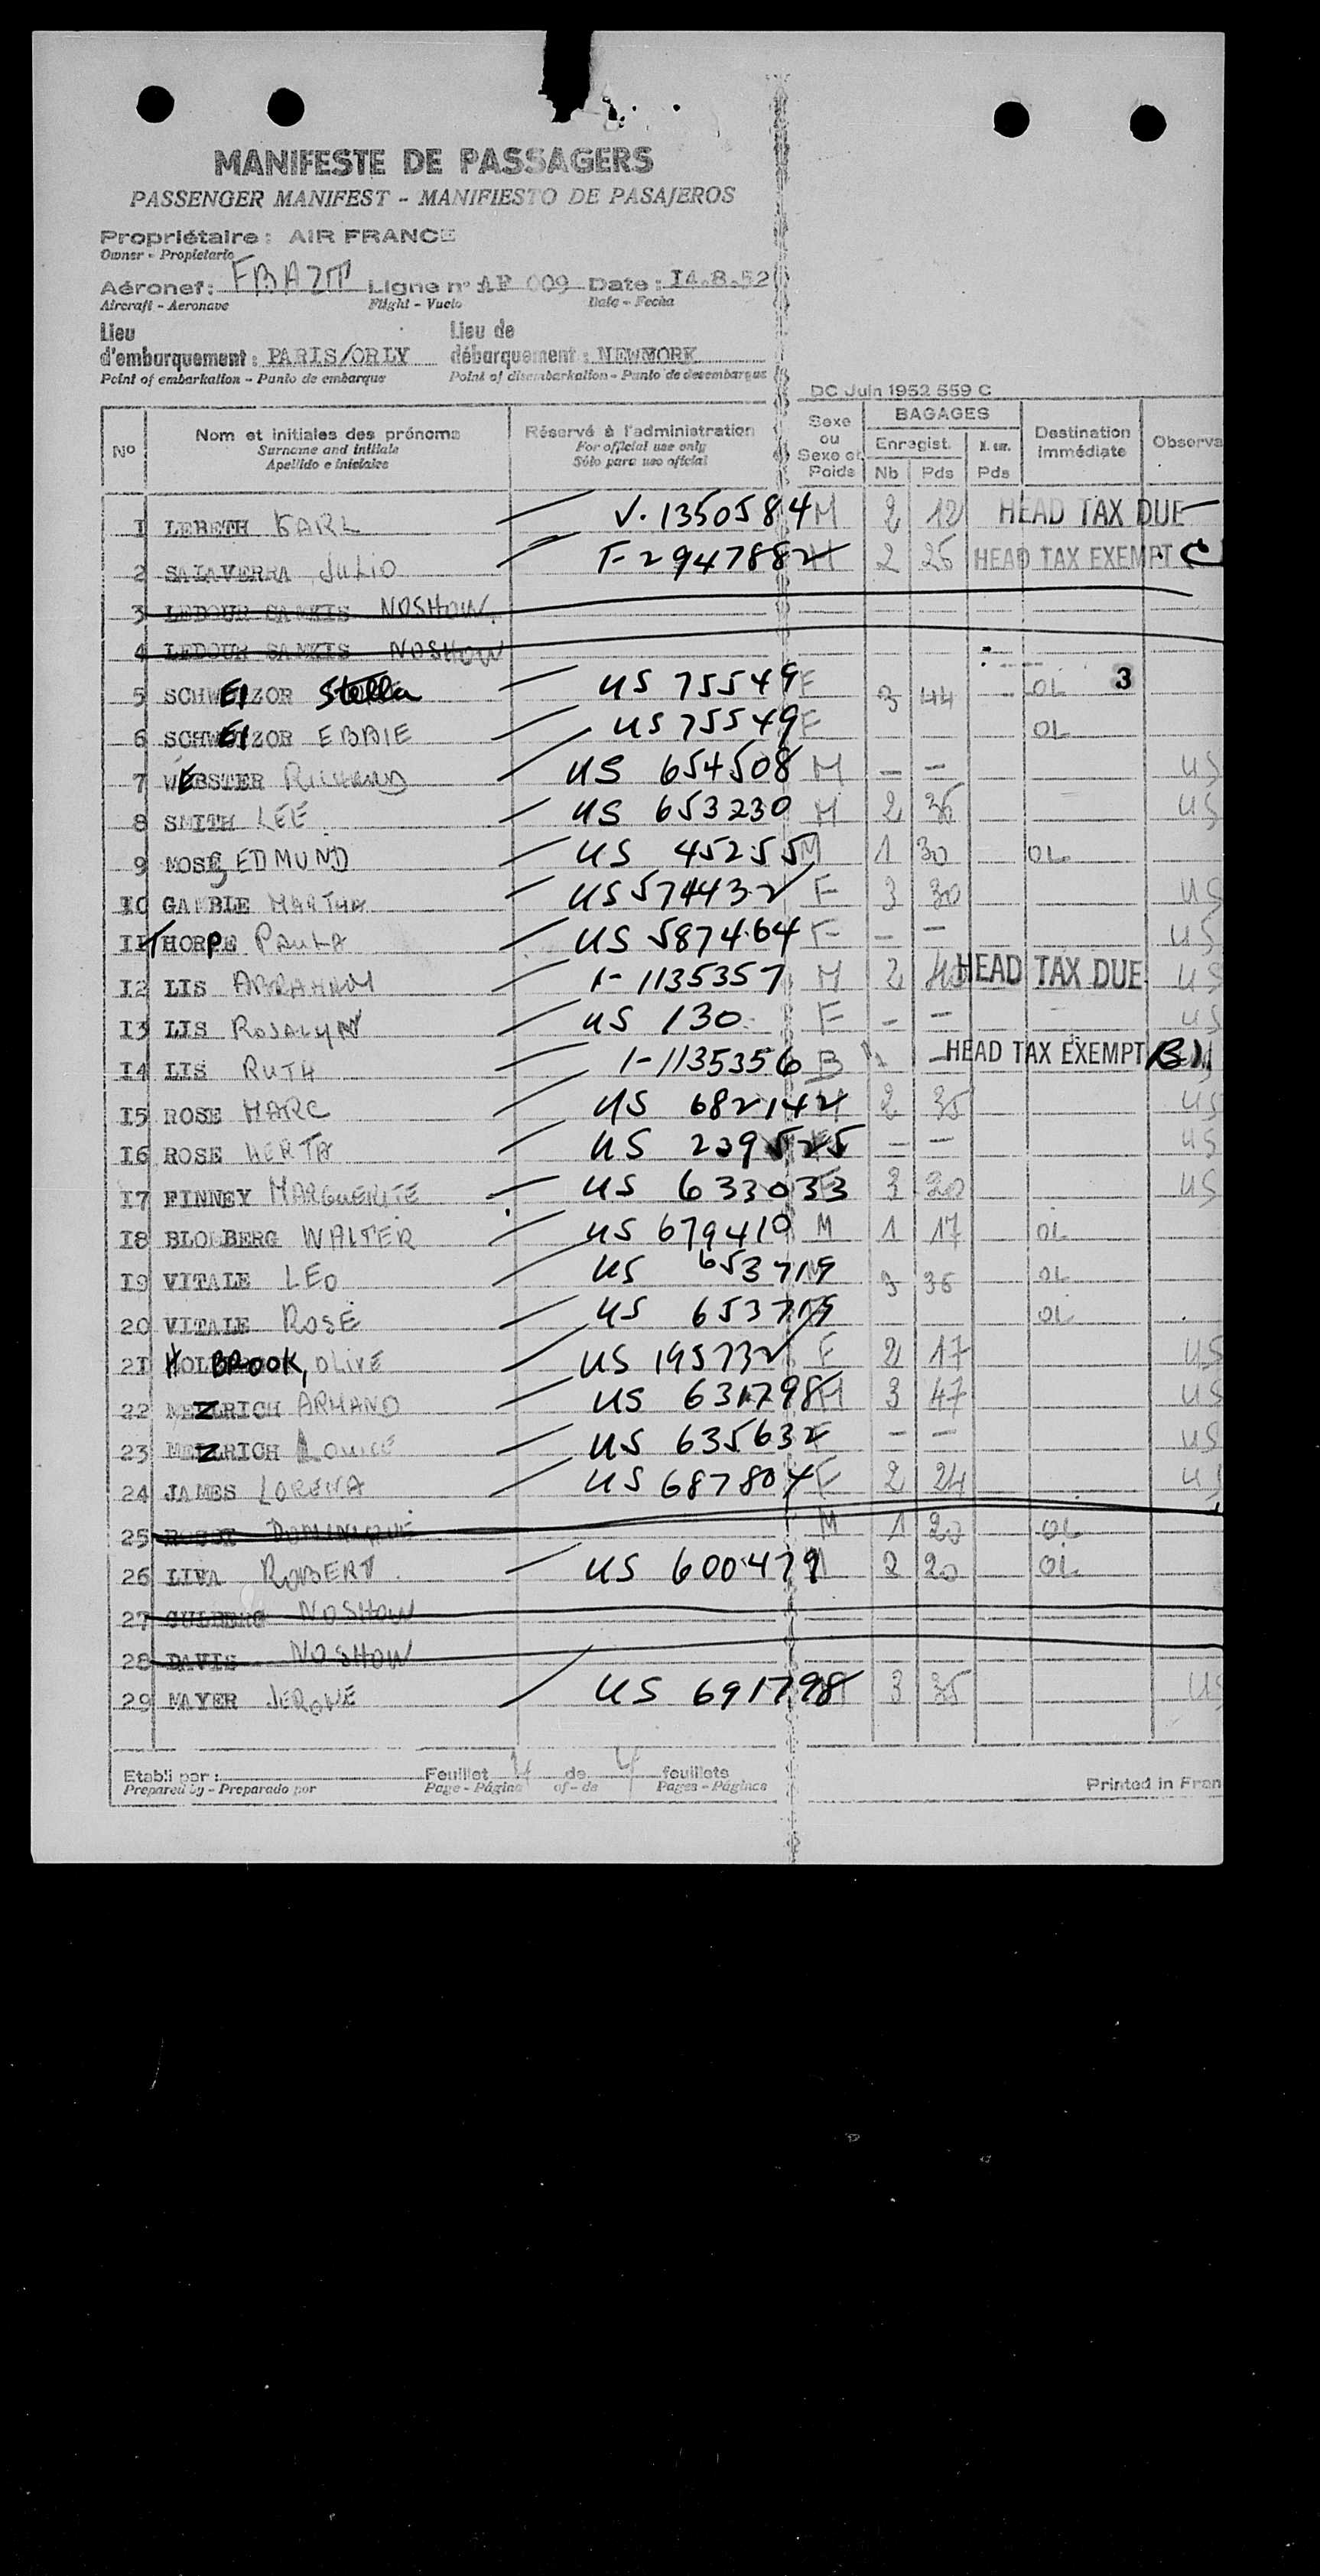 MANIFESTE DE PASSAGERS
PASSENGER MANIFEST - MANIFIESTO DE PASAJEROS
Propriétaire : AIR FRANCE
Owner - Propietario
Aéronef : FBAZT Ligne n° AF 009 Date : I4.8.52
Aircraft - Aeronave Flight - Vuelo Date - Fecha
Lieu d'embarquement : PARIS/ORLY Lieu de débarquement :
Point of embarkation - Punto de embarque Point of disembarkation - Punto de desembarque
DC Juin 1952 559 C
No Nom et initiales des prénoms Réservé à l'administration Sexe ou Sexe et Poids BAGAGES Enregist. Nb Pds Pds Destination immédiate Observa
Surname and initials For official use only
Apellido e iniciales Sólo para uso oficial
I LEBETH KARL V. 1350584 M 2 12 HEAD TAX DUE
2 SALAVERRA JULIO F-2947882 M 2 25 HEAD TAX EXEMPT C
3 NOSHOW
4 NOSHOW
5 SCHWEIZOR Stella US 75549 F 3 44 OL 3
6 SCHWEIZOR US 75549 F OL
7 WEBSTER RICHARD US 654508 M — — US
8 SMITH LEE US 653230 M 2 36 US
9 MOSES EDMUND US 45255 M 1 30 OL
I0 GAMBLE MARTHA US 574432 F 3 30 US
II THORPE PAULA US 587464 F — — US
I2 LIS ABRAHAM I-1135357 M 2 40 HEAD TAX DUE US
I3 LIS ROSALYN US 130 F — — US
I4 LIS RUTH I-1135356 B — HEAD TAX EXEMPT B)
I5 ROSE MARC US 682142 M 2 35 US
I6 ROSE HERTA US 239525 — — US
I7 FINNEY MARGUERITE US 633033 F 3 20 US
I8 BLOMBERG WALTER US 679410 M 1 17 OL
I9 VITALE LEO US 653719 M 3 36 OL
20 VITALE ROSE US 653719 F OL
2I HOLBROOK, OLIVE US 195732 F 2 17 US
22 MEZRICH ARMAND US 631798 M 3 47 US
23 MEZRICH LOUISE US 635632 F — — US
24 JAMES LORENA US 687804 F 2 24 US
25 DOMINIQUE M 1 20 OL
26 LIVA ROBERT US 600479 M 2 20 OL
27 NOSHOW
28 DAVIS NOSHOW
29 MAYER JEROME US 691798 M 3 35 US
Etabli par : Feuillet de 4 feuillets
Prepared by - Preparado por Page - Página of - de Pages - Páginas
Printed in Fran